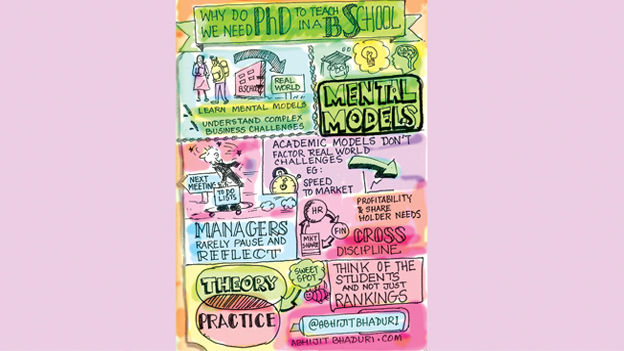 WHY DO WE NEED PhD TO TEACH IN A B SCHOOL
B.SCHOOL
REAL WORLD
LEARN MENTAL MODELS
UNDERSTAND COMPLEX
BUSINESS CHALLENGES
MENTAL
MODELS
NEXT
MEETING
TO DO
LISTS
MANAGERS
RARELY PAUSE AND
REFLECT
ACADEMIC MODELS DON'T
FACTOR REAL WORLD
CHALLENGES
EG:
SPEED
TO MARKET
PROFITABILITY
& SHARE
HOLDER NEEDS
HR
FIN
MKT
SHARE
CROSS
DISCIPLINE
THEORY
SWEET
SPOT
PRACTICE
THINK OF THE
STUDENTS
AND NOT JUST
RANKINGS
@ABHIJITBHADURI
ABHIJITBHADURI.COM